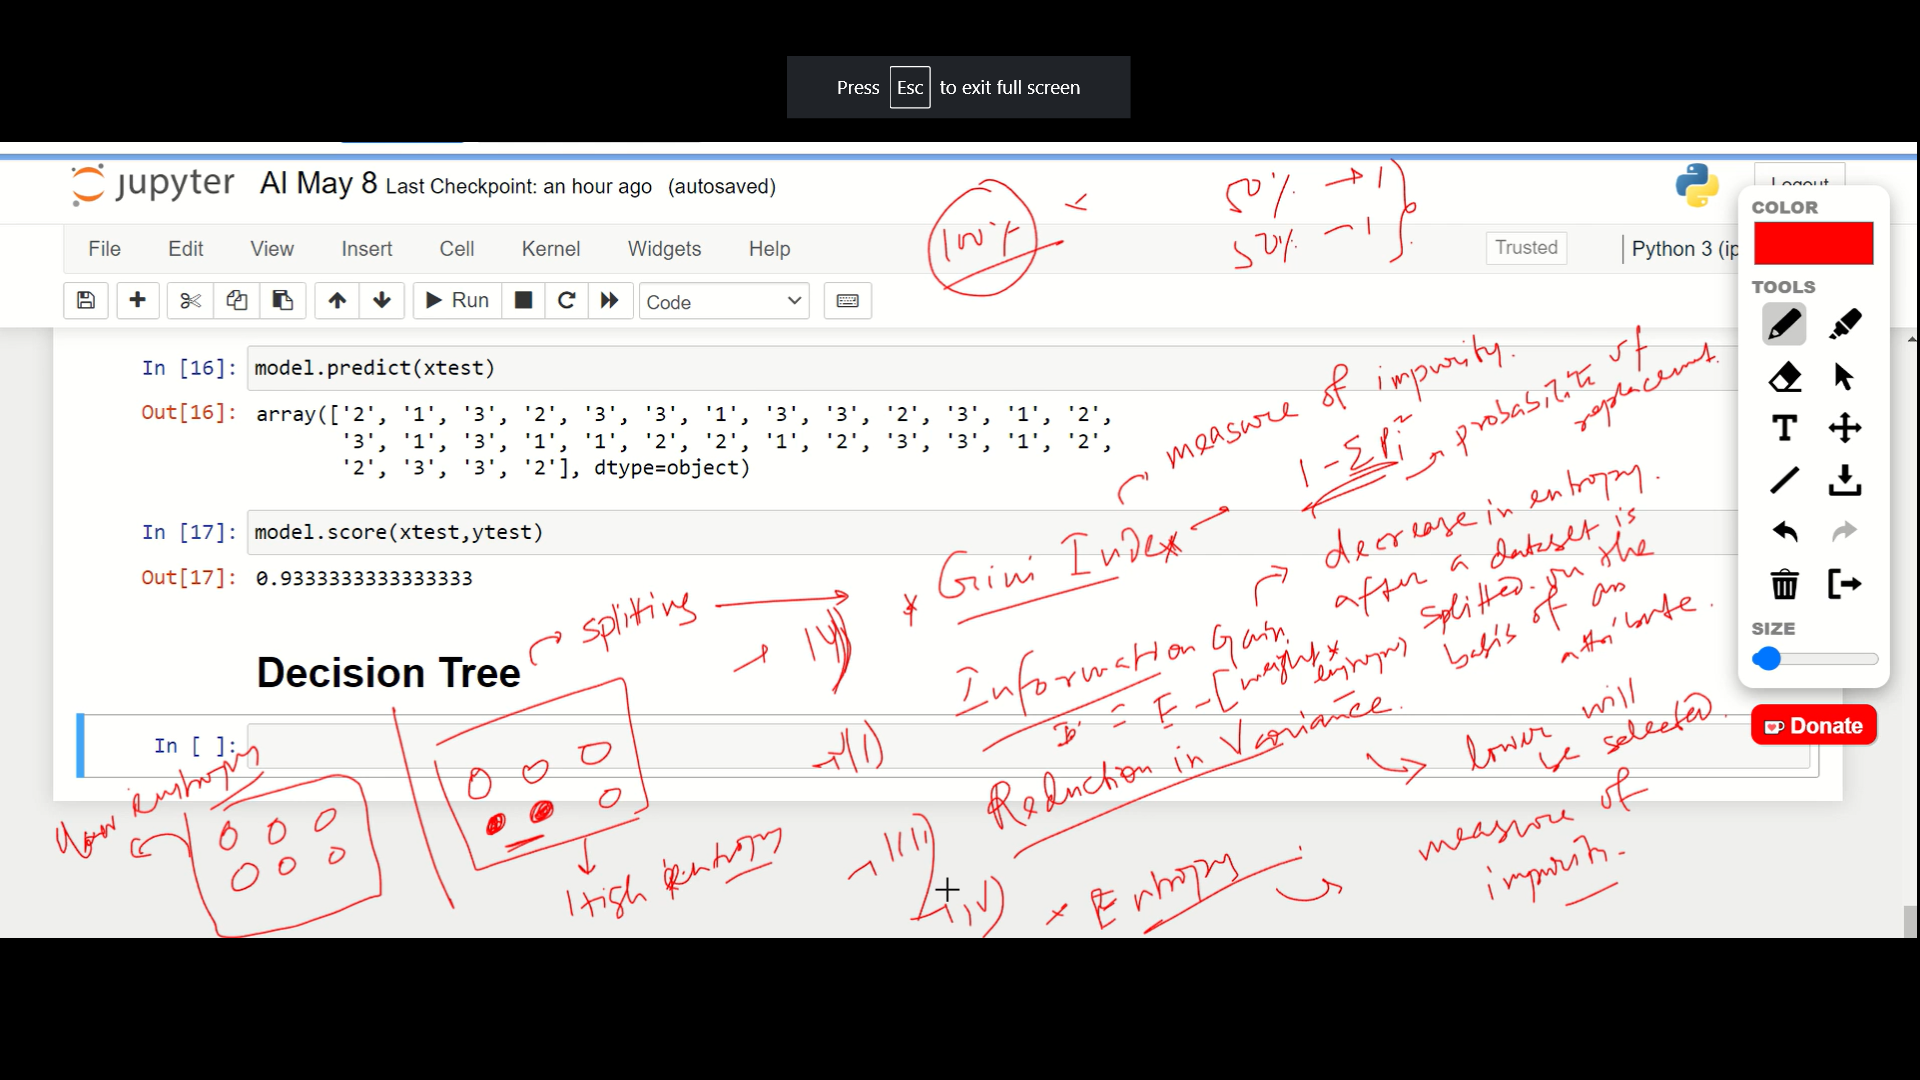 Press Esc to exit full screen
jupyter AI May 8 Last Checkpoint: an hour ago (autosaved)
Logout
File Edit View Insert Cell Kernel Widgets Help
Trusted
Python 3 (ip
Run
Code
100% <
50% → 1
50% - 1
COLOR
TOOLS
SIZE
Donate
In [16]: model.predict(xtest)
Out[16]: array(['2', '1', '3', '2', '3', '3', '1', '3', '3', '2', '3', '1', '2',
'3', '1', '3', '1', '1', '2', '2', '1', '2', '3', '3', '1', '2',
'2', '3', '3', '2'], dtype=object)
In [17]: model.score(xtest,ytest)
Out[17]: 0.9333333333333333
Decision Tree
In [ ]:
splitting
* Gini Index
measure of impurity.
1 - Σ Pi²
probability of
replacement.
Information Gain
decrease in entropy.
after a dataset is
splitted on the
basis of an
attribute.
= E - [weight *
entropy
Reduction in Variance.
lower will
be selected.
* Entropy
measure of
impurity.
High entropy
entropy